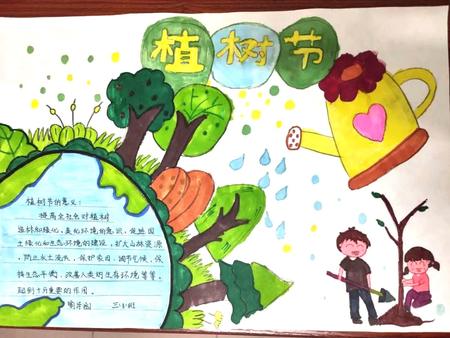 植树节
植树节的意义：
提高全社会对植树
造林和绿化、美化环境的意识，促进国
土绿化和生态环境的建设，扩大山林资源
、防止水土流失，保护农田，调节气候，保
持生态平衡，改善人类的生存环境等等。
起到十分重要的作用。
三（1）班